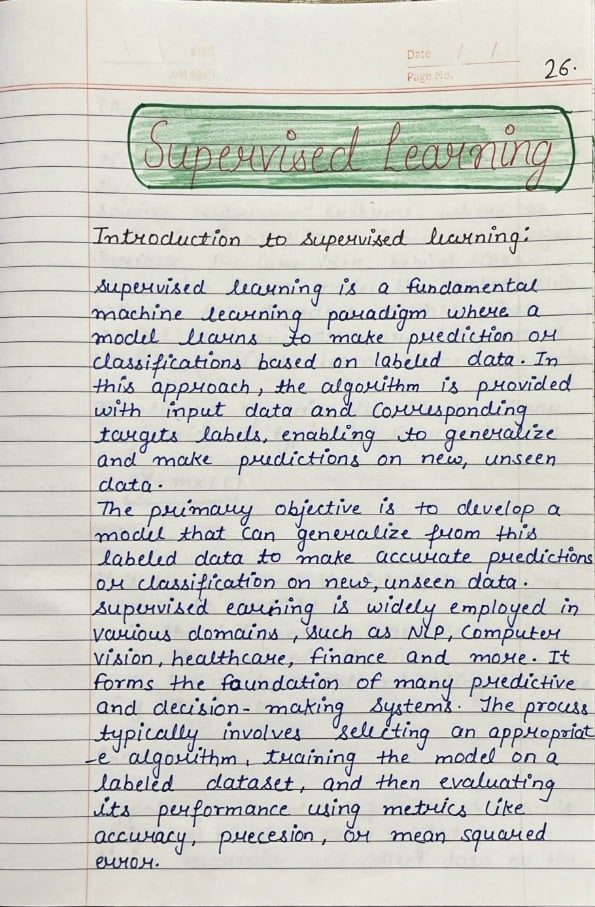 Date / /
Page No.
26.
Supervised Learning
Introduction to supervised learning:
supervised learning is a fundamental
machine learning paradigm where a
model learns to make prediction or
classifications based on labeled data. In
this approach, the algorithm is provided
with input data and corresponding
targets labels, enabling to generalize
and make predictions on new, unseen
data.
The primary objective is to develop a
model that can generalize from this
labeled data to make accurate predictions
or classification on new, unseen data.
supervised earning is widely employed in
various domains, such as NLP, Computer
vision, healthcare, finance and more. It
forms the foundation of many predictive
and decision-making systems. The process
typically involves selecting an appropriat
-e algorithm, training the model on a
labeled dataset, and then evaluating
its performance using metrics like
accuracy, precesion, or mean squared
error.